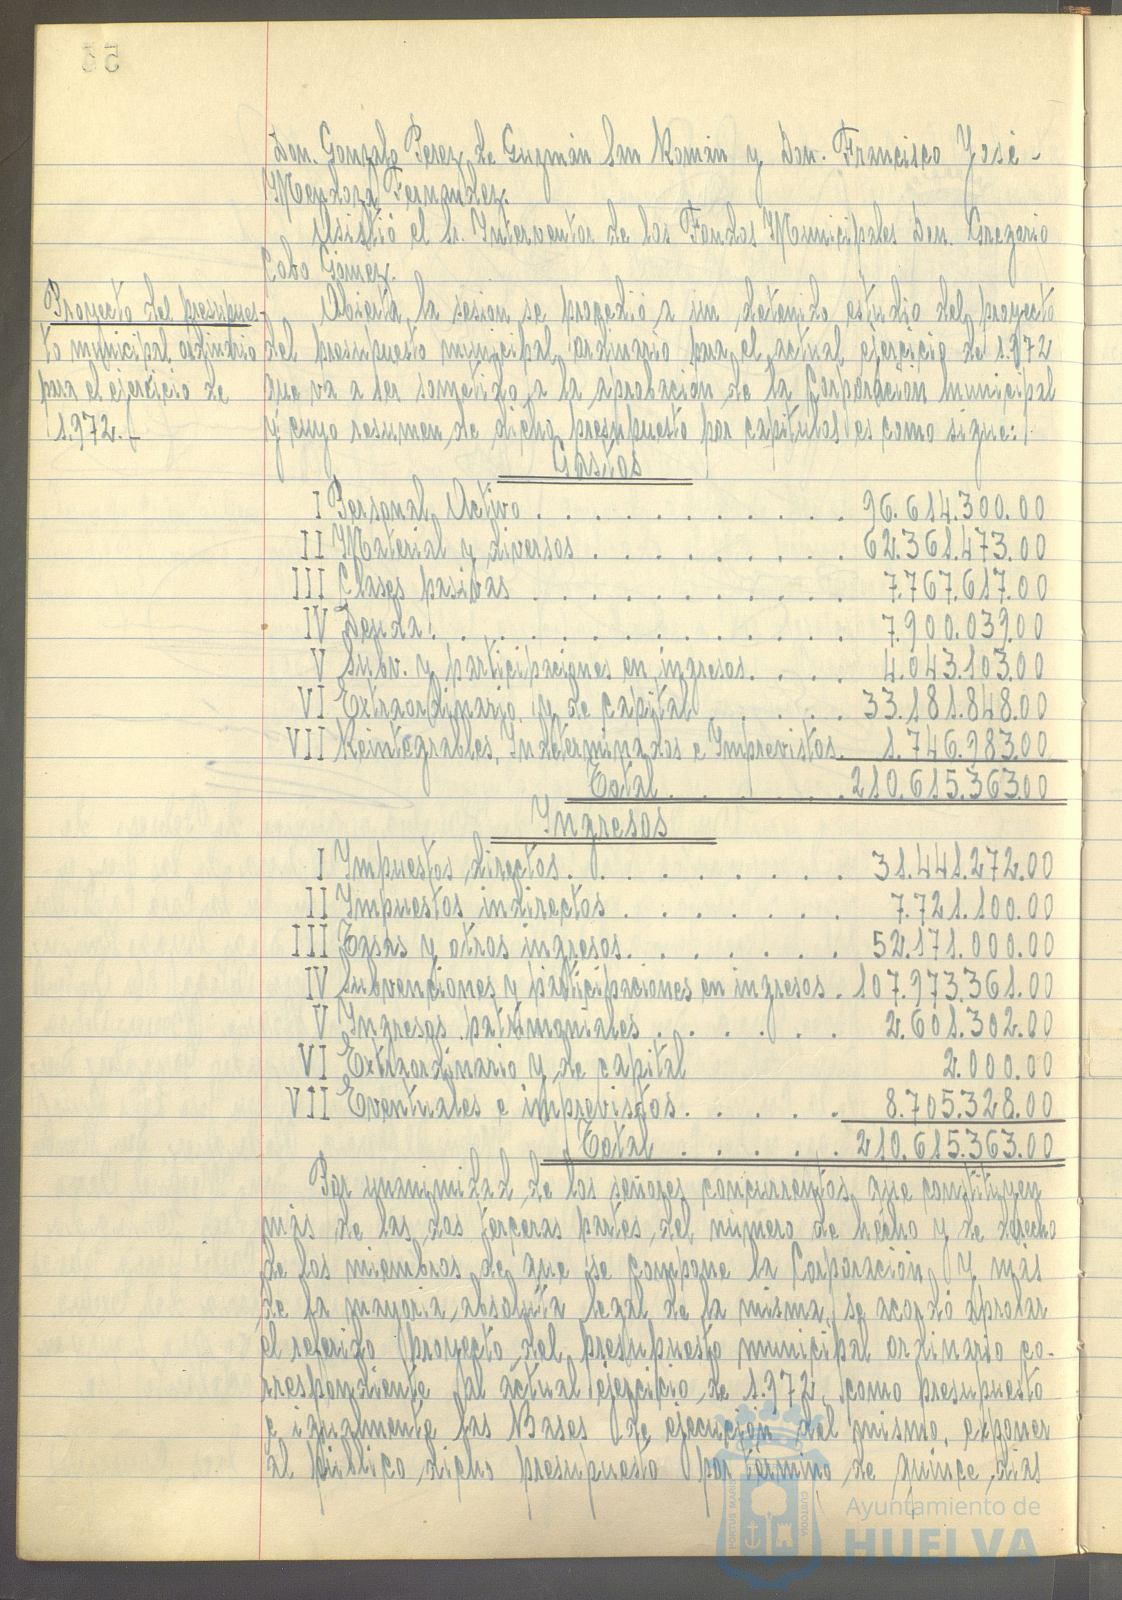 Don. Gonzalo Perez de Guzmán San Román y Don. Francisco José -
Mendoza Fernandez.
Asistió el Sr. Interventor de los Fondos Municipales Don. Gregorio
Cobo Gómez.
Proyecto del presupues-
to municipal ordinario
para el ejercicio de
1.972.-
Abierta la sesión se procedió a un detenido estudio del proyecto
del presupuesto municipal ordinario para el actual ejercicio de 1.972
que va a ser sometido a la aprobación de la Corporación municipal
y cuyo resumen de dicho presupuesto por capitulos es como sigue:
Gastos
I Personal Activo . . . . . . . . . . . 96.614.300.00
II Material y diversos . . . . . . . . . 62.361.473.00
III Clases pasivas . . . . . . . . . . . 7.767.617.00
IV Deuda . . . . . . . . . . . . . . 7.900.039.00
V Subv. y participaciones en ingresos. . . . 4.043.103.00
VI Extraordinario y de capital . . . . 33.181.848.00
VII Reintegrables, Indeterminados e Imprevistos. 1.746.983.00
Total . . . . . . 210.615.363.00
Ingresos
I Impuestos directos . . . . . . . . . . 31.441.272.00
II Impuestos indirectos . . . . . . . 7.721.100.00
III Tasas y otros ingresos. . . . . . . 52.171.000.00
IV Subvenciones y participaciones en ingresos . 107.973.361.00
V Ingresos patrimoniales . . . . . . 2.601.302.00
VI Extraordinario y de capital 2.000.00
VII Eventuales e imprevistos. . . . . 8.705.328.00
Total . . . . . 210.615.363.00
Por unanimidad de los señores concurrentes, que constituyen
más de las dos terceras partes del número de hecho y de derecho
de los miembros de que se compone la Corporación y más
de la mayoria absoluta legal de la misma, se acordó aprobar
el referido proyecto del presupuesto municipal ordinario co-
rrespondiente al actual ejercicio de 1.972, como presupuesto
e igualmente las Bases de ejecución del mismo, exponer
al público dicho presupuesto por término de quince dias
PORTUS MARIS
CUSTODIA
Ayuntamiento de
HUELVA